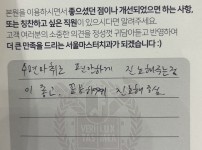 본원을 이용하시면서 좋으셨던 점이나 개선되었으면 하는 사항,
또는 칭찬하고 싶은 직원이 있으시다면 알려주세요.
고객 여러분의 소중한 의견을 정성껏 귀담아듣고 반영하여
더 큰 만족을 드리는 서울마스터치과가 되겠습니다 :)
수면마취로 편안하게 진료해주는점
이 좋고, 꼼꼼하게 진료해주심